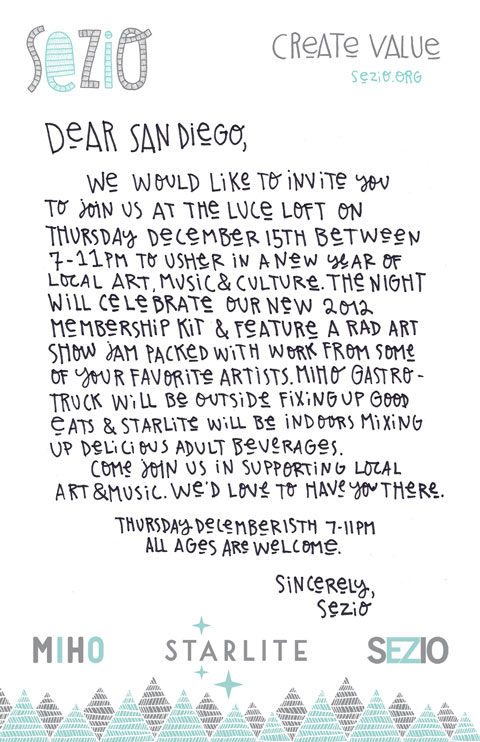 SEZIO
CREATE VALUE
SEZIO.ORG
DEAR SAN DIEGO,
WE WOULD LIKE TO INVITE YOU
TO JOIN US AT THE LUCE LOFT ON
THURSDAY DECEMBER 15TH BETWEEN
7-11PM TO USHER IN A NEW YEAR OF
LOCAL ART, MUSIC & CULTURE. THE NIGHT
WILL CELEBRATE OUR NEW 2012
MEMBERSHIP KIT & FEATURE A RAD ART
SHOW JAM PACKED WITH WORK FROM SOME
OF YOUR FAVORITE ARTISTS. MIHO GASTRO-
TRUCK WILL BE OUTSIDE FIXING UP GOOD
EATS & STARLITE WILL BE INDOORS MIXING
UP DELICIOUS ADULT BEVERAGES.
COME JOIN US IN SUPPORTING LOCAL
ART & MUSIC. WE'D LOVE TO HAVE YOU THERE.
THURSDAY DECEMBER 15TH 7-11PM
ALL AGES ARE WELCOME.
SINCERELY,
SEZIO
MIHO STARLITE SEZIO